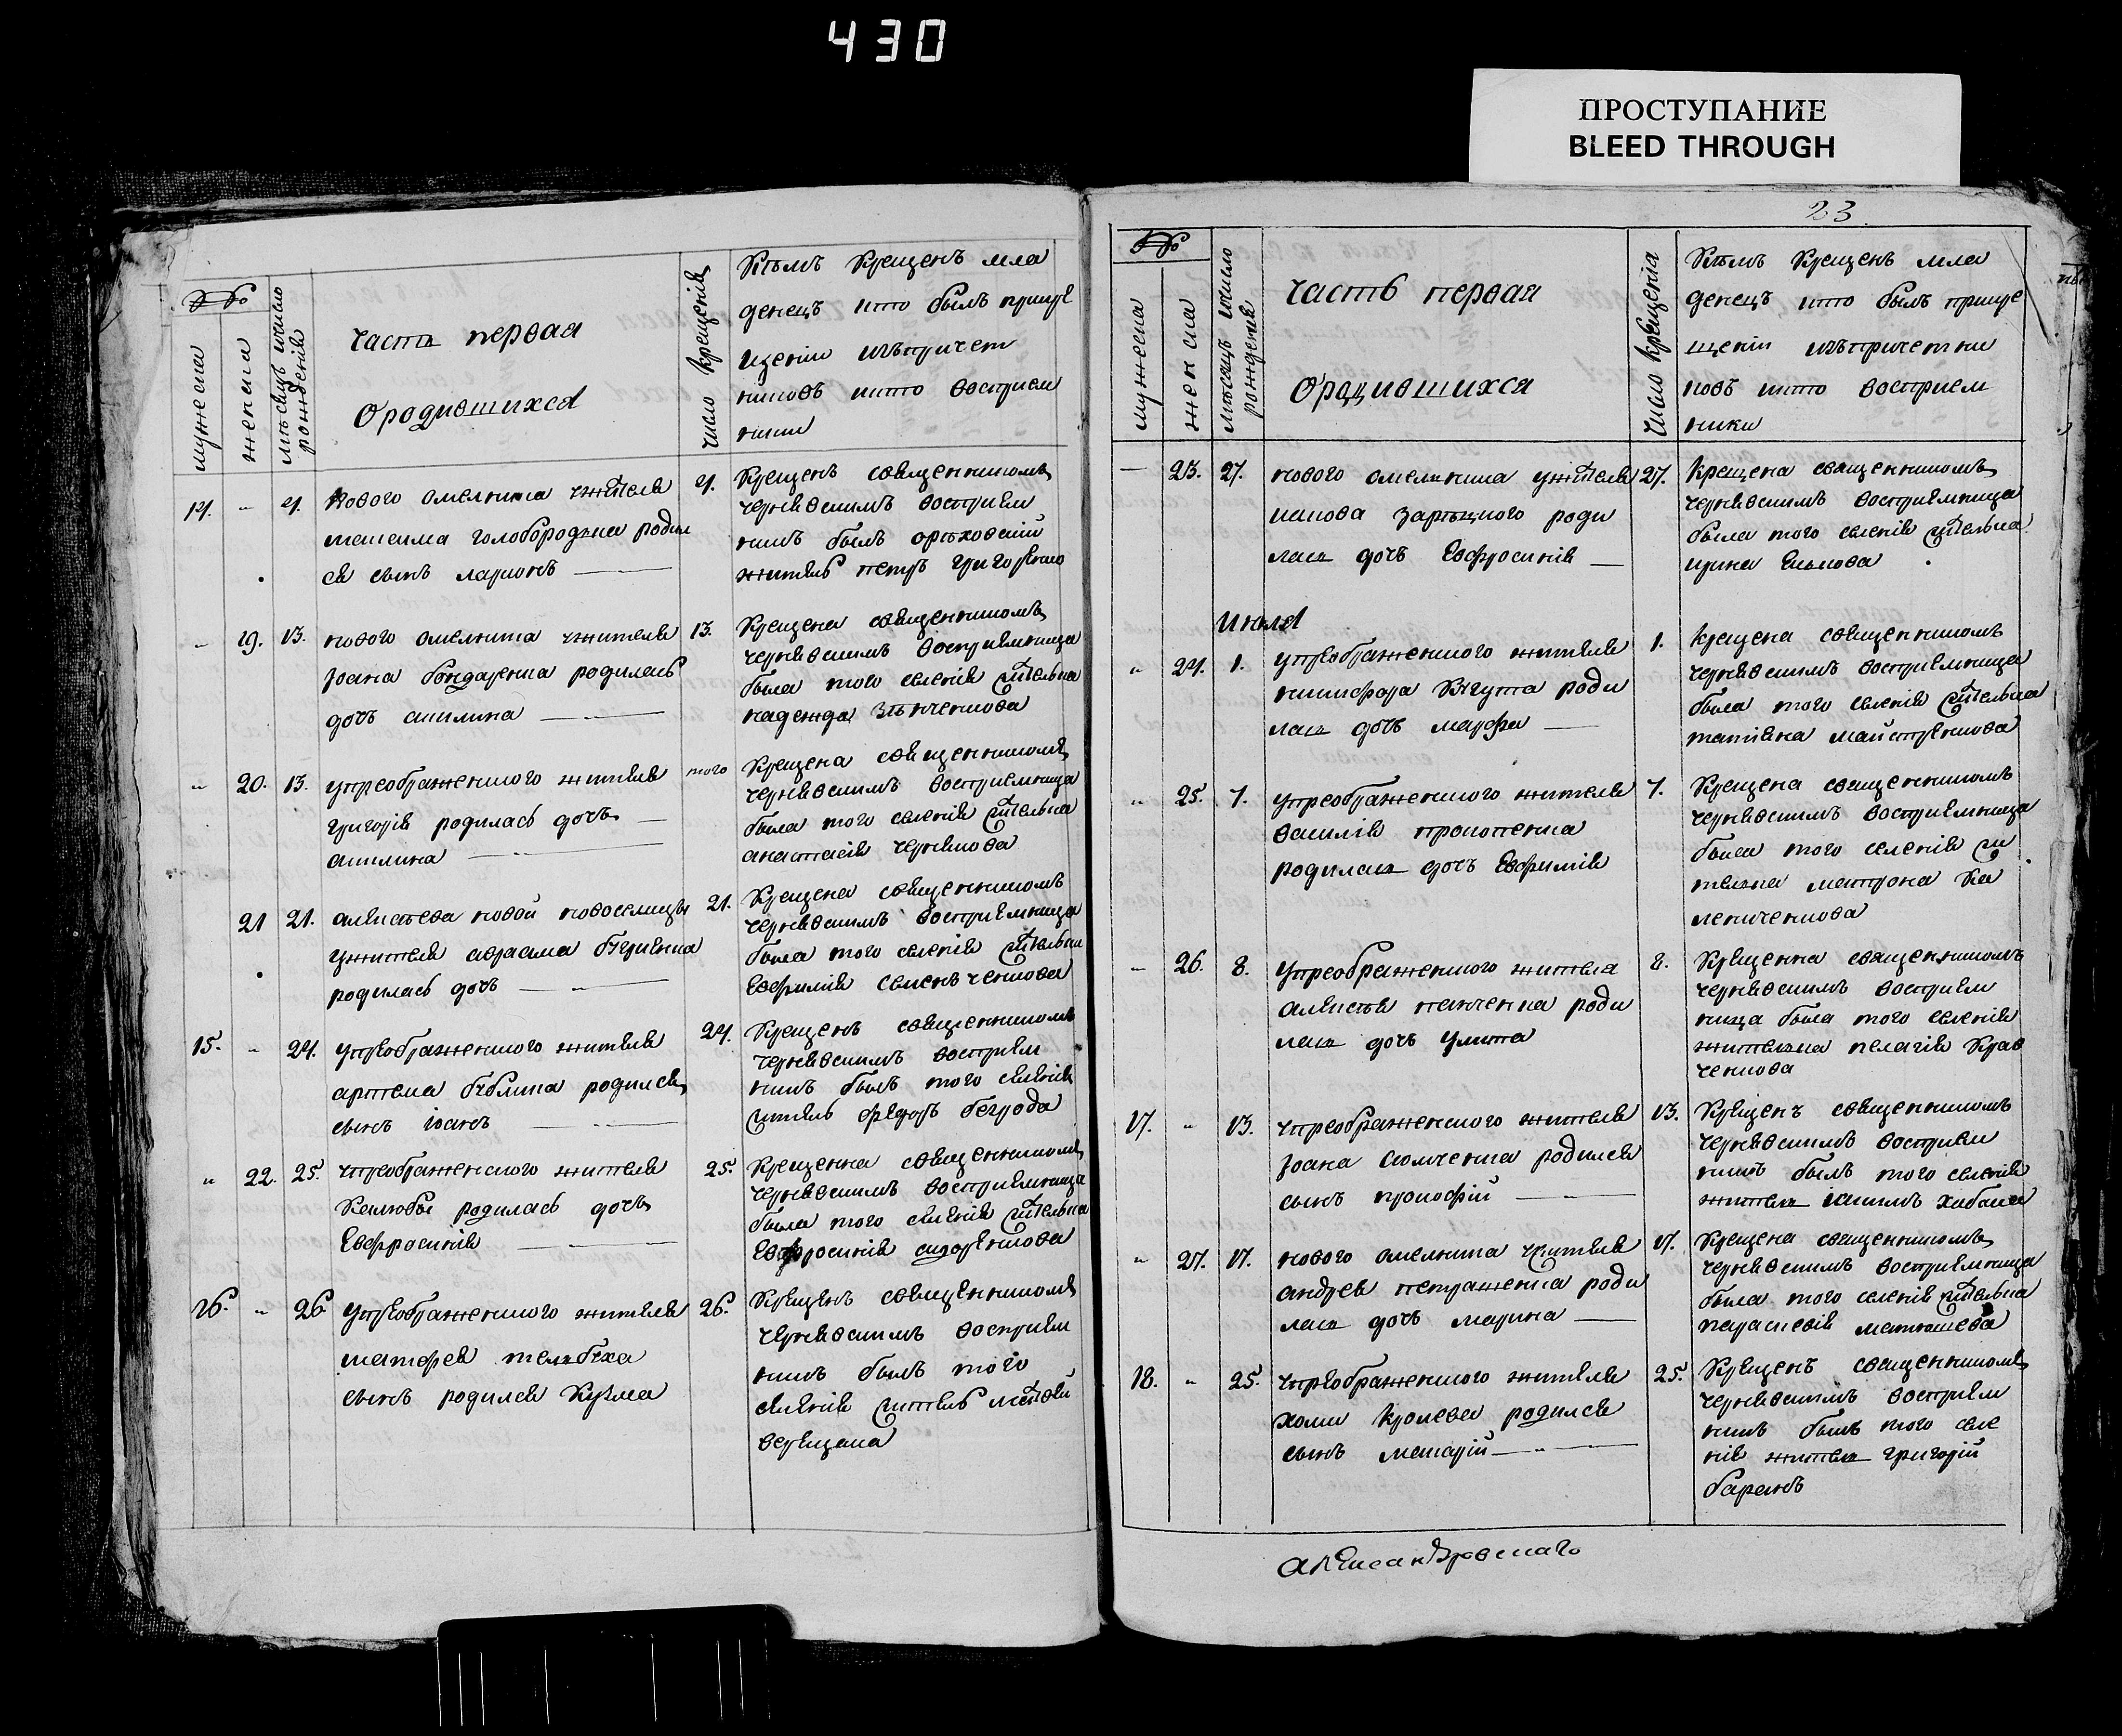 430
ПРОСТУПАНИЕ
BLEED THROUGH
№№
мужеска
женска
мѣсяцъ и число
рожденія
часть первая
ородившихся
число крещенія
Кѣмъ крещенъ мла
денецъ кто былъ прикре
щеніи изъпричет
никовъ икто восприем
ники
14. „ 4. нового омелника ужителя
максима голобородька родил
ся сынъ ларионъ
4. Крещенъ священникомъ
чернявскимъ восприем
никъ былъ орѣховскій
житель петръ григоренко
„ 19. 13. нового омелника ужителя
Іоана бондаренка родилась
дочъ акилина
13. Крещена священникомъ
чернявскимъ восприемница
была того селенія жителька
надежда
„ 20. 13. упреображенского жителя
григорія родилась дочъ
акилина
того Крещена священникомъ
чернявскимъ восприемница
была того селенія жителька
анастасія
21 21. алексѣева новой новоселицы
ужителя аврама
родилась дочъ
21. Крещена священникомъ
чернявскимъ восприемница
была того селенія жителька
Евфимія
15. „ 24. упреображенского жителя
артема родился
сынъ іоанъ
24. Крещенъ священникомъ
чернявскимъ восприем
никъ былъ того селенія
житель федоръ
„ 22. 25. упреображенского жителя
родилась дочъ
Евфросинія
25. Крещенна священникомъ
чернявскимъ восприемница
была того селенія жителька
Евфросинія сидоренкова
16. „ 26. упреображенского жителя
матфея
сынъ родился Кузма
26. Крещенъ священникомъ
чернявскимъ восприем
никъ былъ того
селенія житель матвей
верещака
23
№№
мужеска
женска
мѣсяцъ и число
рожденія
часть первая
ородившихся
число крещенія
Кѣмъ крещенъ мла
денецъ кто былъ прикре
щеніи изъпричетни
ковъ икто восприем
ники
— 23. 27. нового омельника ужителя
якова зарѣцкого роди
лась дочъ Евфросинія
27. Крещена священникомъ
чернявскимъ восприемница
была того селенія жителька
ирина
Июля
„ 24. 1. упреображенского жителя
никифора роди
лась дочъ марфа
1. крещена священникомъ
чернявскимъ восприемница
была того селенія жителька
татіяна майстренкова
„ 25. 7. упреображенского жителя
василія прокопенка
родилась дочъ Евфимія
7. Крещена священникомъ
чернявскимъ восприемница
была того селенія жи
телька матрона Ка
лениченкова
„ 26. 8. упреображенского жителя
алексѣя панченка роди
лась дочъ улита
8. Крещенна священникомъ
чернявскимъ восприем
ница была того селенія
жителька пелагія Крав
ченкова
17. „ 13. упреображенского жителя
Іоана родился
сынъ прокофій
13. Крещенъ священникомъ
чернявскимъ восприем
никъ былъ того селенія
житель
„ 27. 17. нового омелника ужителя
андрея петрашенка роди
лась дочъ марина
17. Крещена священникомъ
чернявскимъ восприемница
была того селенія жителька
параскевія матюшева
18. „ 25. упреображенского жителя
хоми Кролева родился
сынъ макарій
25. Крещенъ священникомъ
чернявскимъ восприем
никъ былъ того селе
нія житель григорій
баранъ
александровскаго